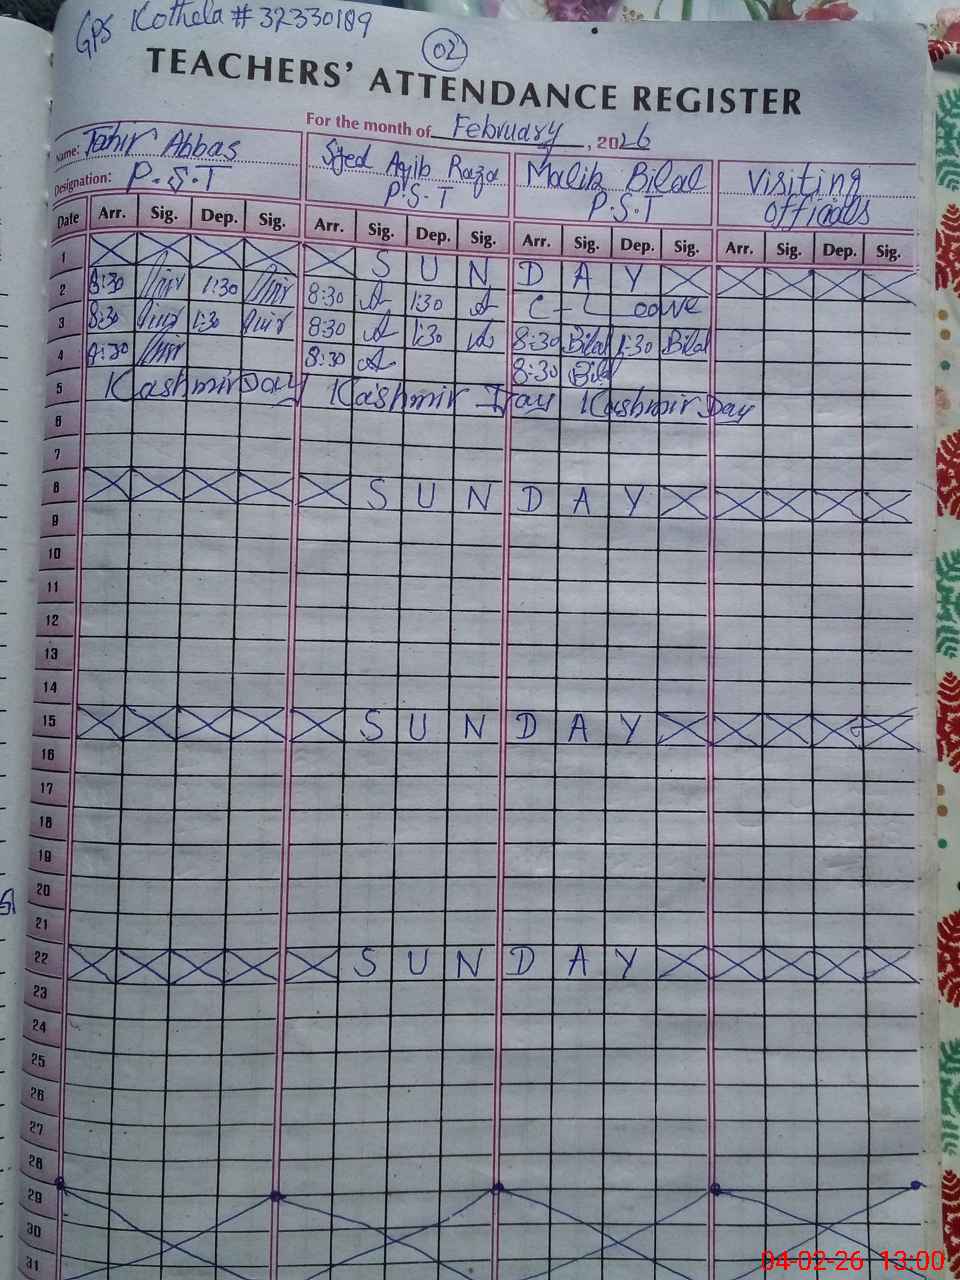 GPS Kothela # 37330189
02
TEACHERS' ATTENDANCE REGISTER
For the month of February, 2026
Name: Tahir Abbas
Designation: P.S.T
Syed Aqib Raza
P.S.T
Malik Bilal
P.S.T
Visiting
Officials
Date Arr. Sig. Dep. Sig. Arr. Sig. Dep. Sig. Arr. Sig. Dep. Sig. Arr. Sig. Dep. Sig.
1 S U N D A Y
2 8:30 1:30 8:30 1:30 C-L
3 8:30 1:30 8:30 1:30 8:30 Bilal 1:30 Bilal
4 8:30 8:30 8:30 Bilal
5 Kashmir Day Kashmir Day Kashmir Day
6
7
8 S U N D A Y
9
10
11
12
13
14
15 S U N D A Y
16
17
18
19
20
21
22 S U N D A Y
23
24
25
26
27
28
29
30
31
04-02-26 13:00